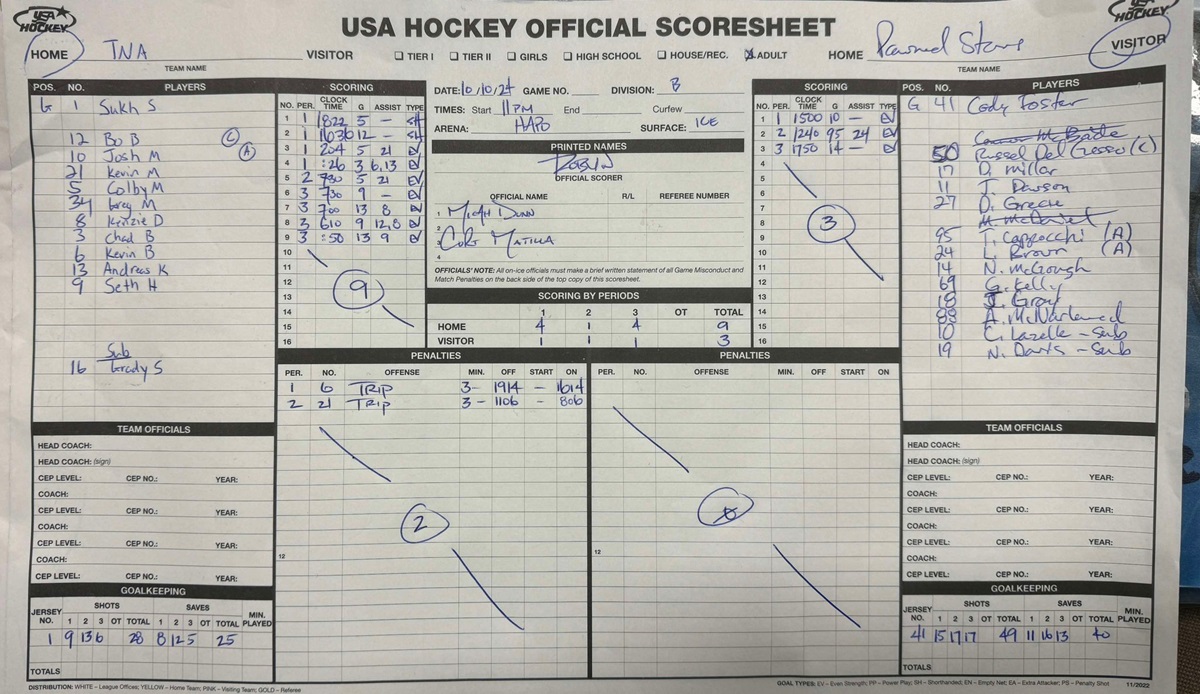 USA HOCKEY
USA HOCKEY OFFICIAL SCORESHEET
HOCKEY
HOME TNA VISITOR
TEAM NAME
☐ TIER I ☐ TIER II ☐ GIRLS ☐ HIGH SCHOOL ☐ HOUSE/REC. ☒ ADULT
HOME Pawned Stars VISITOR
TEAM NAME
POS. NO. PLAYERS
G 1 Sukh S
12 Bo B (C)
10 Josh M (A)
21 Kevin M
5 Colby M
34 Grey M
8 Kenzie D
3 Chad B
6 Kevin B
13 Andreas K
9 Seth H
Sub
16 Grady S
SCORING
NO. PER. CLOCK TIME G ASSIST TYPE
1 1 1822 5 — SH
2 1 1636 12 — SH
3 1 204 5 21 EV
4 1 :26 3 6,13 EV
5 2 730 5 21 EV
6 3 730 9 — EV
7 3 700 13 8 EV
8 3 610 9 12,8 EV
9 3 :50 13 9 EV
10
11
12
13
14
15
16
9
DATE: 10/10/24 GAME NO. DIVISION: B
TIMES: Start 11PM End Curfew
ARENA: HAPO SURFACE: ICE
PRINTED NAMES
ROBYN
OFFICIAL SCORER
OFFICIAL NAME R/L REFEREE NUMBER
1 MICAH DUNN
2
3 COLE MATILLA
4
OFFICIALS' NOTE: All on-ice officials must make a brief written statement of all Game Misconduct and
Match Penalties on the back side of the top copy of this scoresheet.
SCORING BY PERIODS
1 2 3 OT TOTAL
HOME 4 1 4 9
VISITOR 1 1 1 3
SCORING
NO. PER. CLOCK TIME G ASSIST TYPE
1 1 1500 10 — EV
2 2 1240 95 24 EV
3 3 1750 14 — EV
4
5
6
7
8
9
10
11
12
13
14
15
16
3
POS. NO. PLAYERS
G 41 Cody Foster
50 Russel Del Grosso (C)
17 D. Millar
11 T. Dawson
27 D. Grecie
95 T. Cappocchi (A)
24 L. Brown (A)
14 N. McGough
69 G. Kelly
18 J. Gray
88
10 C. Lazelle - Sub
19 N. Davis - Sub
PENALTIES
PER. NO. OFFENSE MIN. OFF START ON
1 6 TRIP 3 - 1914 - 1614
2 21 TRIP 3 - 1106 - 806
12
2
PENALTIES
PER. NO. OFFENSE MIN. OFF START ON
12
TEAM OFFICIALS
HEAD COACH:
HEAD COACH: (sign)
CEP LEVEL: CEP NO.: YEAR:
COACH:
CEP LEVEL: CEP NO.: YEAR:
COACH:
CEP LEVEL: CEP NO.: YEAR:
COACH:
CEP LEVEL: CEP NO.: YEAR:
GOALKEEPING
JERSEY NO. SHOTS 1 2 3 OT TOTAL SAVES 1 2 3 OT TOTAL MIN. PLAYED
1 9 13 6 28 8 12 5 25
TOTALS
TEAM OFFICIALS
HEAD COACH:
HEAD COACH: (sign)
CEP LEVEL: CEP NO.: YEAR:
COACH:
CEP LEVEL: CEP NO.: YEAR:
COACH:
CEP LEVEL: CEP NO.: YEAR:
COACH:
CEP LEVEL: CEP NO.: YEAR:
GOALKEEPING
JERSEY NO. SHOTS 1 2 3 OT TOTAL SAVES 1 2 3 OT TOTAL MIN. PLAYED
41 15 17 17 49 11 16 13 40
TOTALS
DISTRIBUTION: WHITE – League Offices; YELLOW – Home Team; PINK – Visiting Team; GOLD – Referee
GOAL TYPES: EV – Even Strength; PP – Power Play; SH – Shorthanded; EN – Empty Net; EA – Extra Attacker; PS – Penalty Shot 11/2022